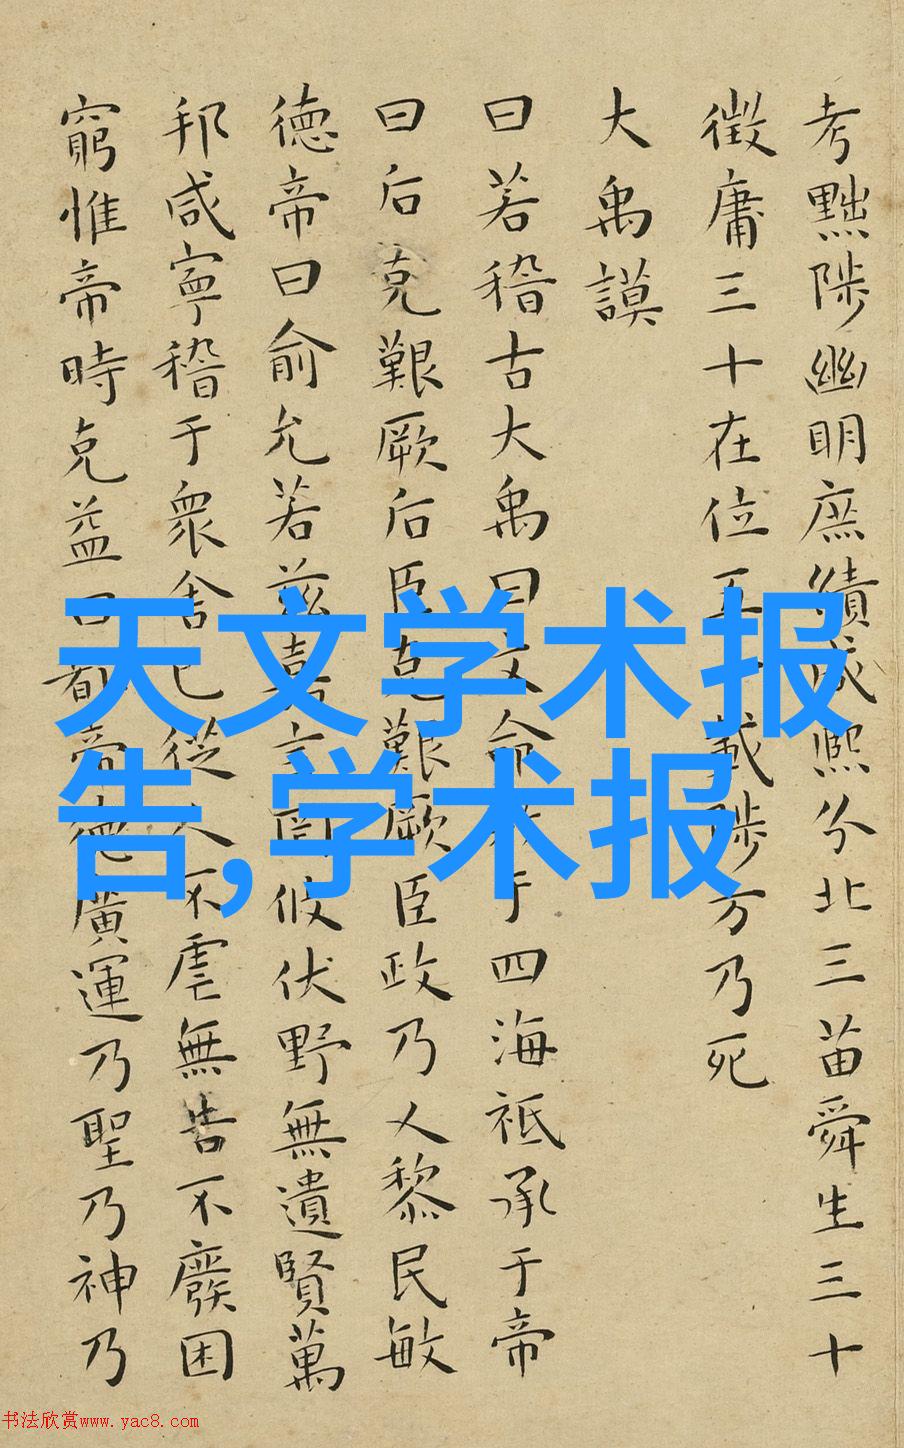 考黜陟幽明庶績咸熙分北三苗舜生三十
徵庸三十在位五載陟方乃死
大禹謨
曰若稽古大禹曰文命于四海祗承于帝
曰后克艱厥后臣克艱厥臣政乃乂黎民敏
德帝曰俞允若茲嘉言罔攸伏野無遺賢萬
邦咸寧稽于衆舍己從人不虐無告不廢困
窮惟帝時克益曰都帝德廣運乃聖乃神乃
天文学术报
告,学术报
书法欣赏www.yac8.com